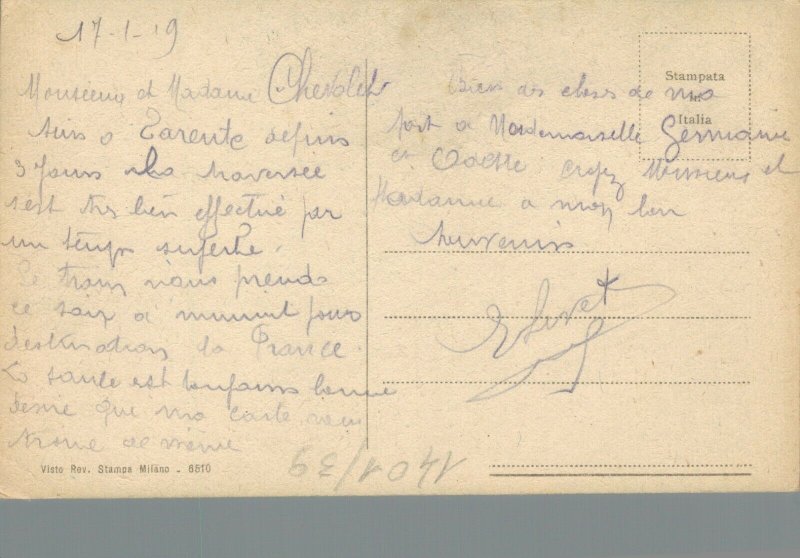 17-1-19
Monsieur et Madame Chevalet
suis a Tarente depuis
3 Jours la traversée
s'est tres bien effectué par
un temps superbe.
Le train nous prends
ce soir a minuit pour
destination la France.
La santé est toujours bonne
desire que ma carte vous
trouve de même
Bien des choses de ma
part a Mademoiselle Germaine
et Odette croyez Monsieur et
Madame a mon bon
souvenir
Stampata
in
Italia
Visto Rev. Stampa Milano - 6510
1401/39